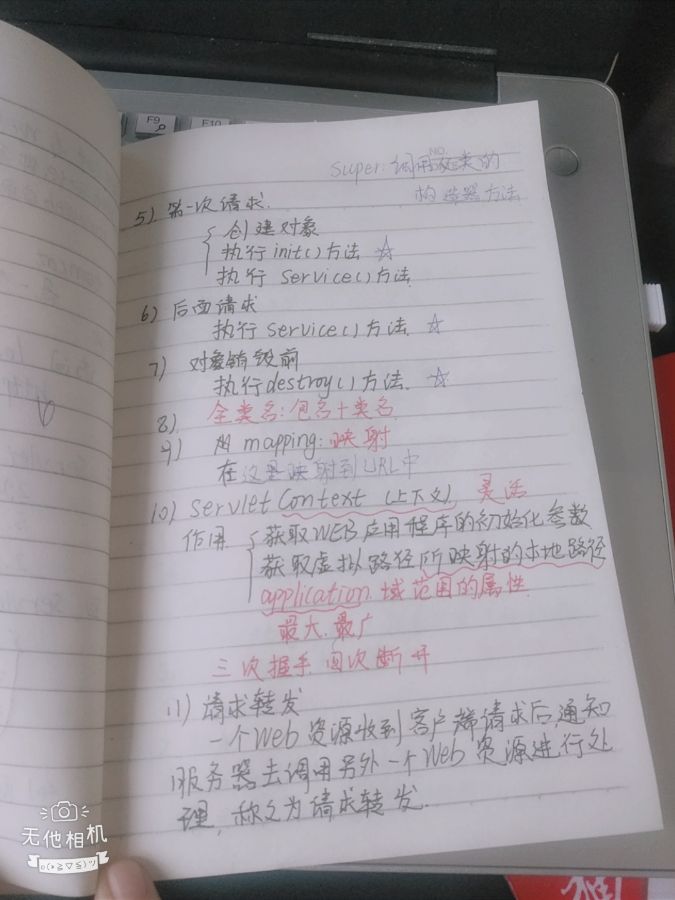 F9
F10
NO.
super:调用父类的
构造器方法
5) 第一次请求.
创建对象
执行init()方法 ☆
执行 Service()方法.
6) 后面请求
执行Service()方法. ☆
7) 对象销毁前
执行destroy()方法. ☆
8) 全类名:包名+类名
9) mapping:映射
在这里映射到URL中
10) Servlet Context (上下文) 灵活
作用 获取WEB应用程序的初始化参数
获取虚拟路径所映射的本地路径
application 域范围的属性.
最大.最广
三次握手.四次断开
11) 请求转发
一个Web资源收到客户端请求后,通知
服务器去调用另外一个Web资源进行处
理,称之为请求转发.
无他相机